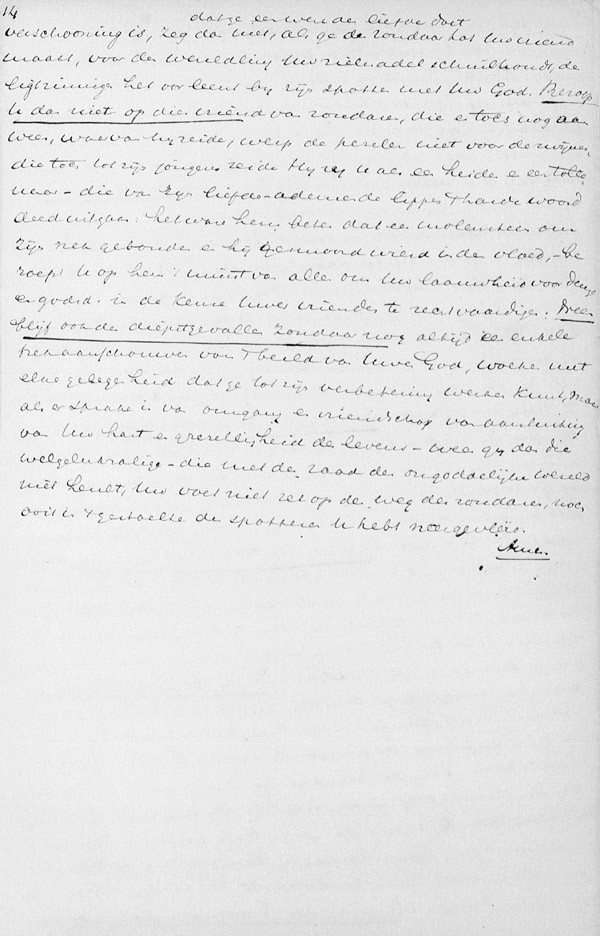 14
dat ge een werk der liefde doet
verschooning is, zeg dan niet, als ge den zondaar tot Uw vriend
maakt, voor den wereldling Uw zieleadel schuilhoudt, de
ligtzinnige het oor leent bij zijn spotten met Uw God. Beroep
U dan niet op dien vriend van zondaren, die en toch nog aan
wien, waarvan hij zeide, werp de paarlen niet voor de zwijnen,
die toch tot zijn jongeren zeide Hij zij U als een heiden en een tolle
naar – die van Zijn liefde-ademende lippen 't harde woord
deed uitgaan: het ware hem beter dat een molensteen om
zijn nek gebonden en hij geworpen wierd in den vloed, – be
roept U op hem 't minst van allen om Uw laauwheid voor deugd
en godsd. in de keuze Uwer vrienden te rechtvaardigen. Doen
blijf ook den diepstgevallen zondaar nog altijd een enkele
trek aanschouwen van 't beeld van Uwen God, zoeke met
elke gelegenheid dat ge tot zijn verbetering werken kunt, Maar
als er sprake is van omgang en vriendschap van aansluiting
van Uw hart en gezelligheid des levens – wees gij dan die
welgelukzalige – die met den raad der ongoddelijke wereld
niet heult, Uw voet niet zet op de weg der zondaren, noch
ooit in 't gestoelte der spotters U hebt neergevleid.
Amen.